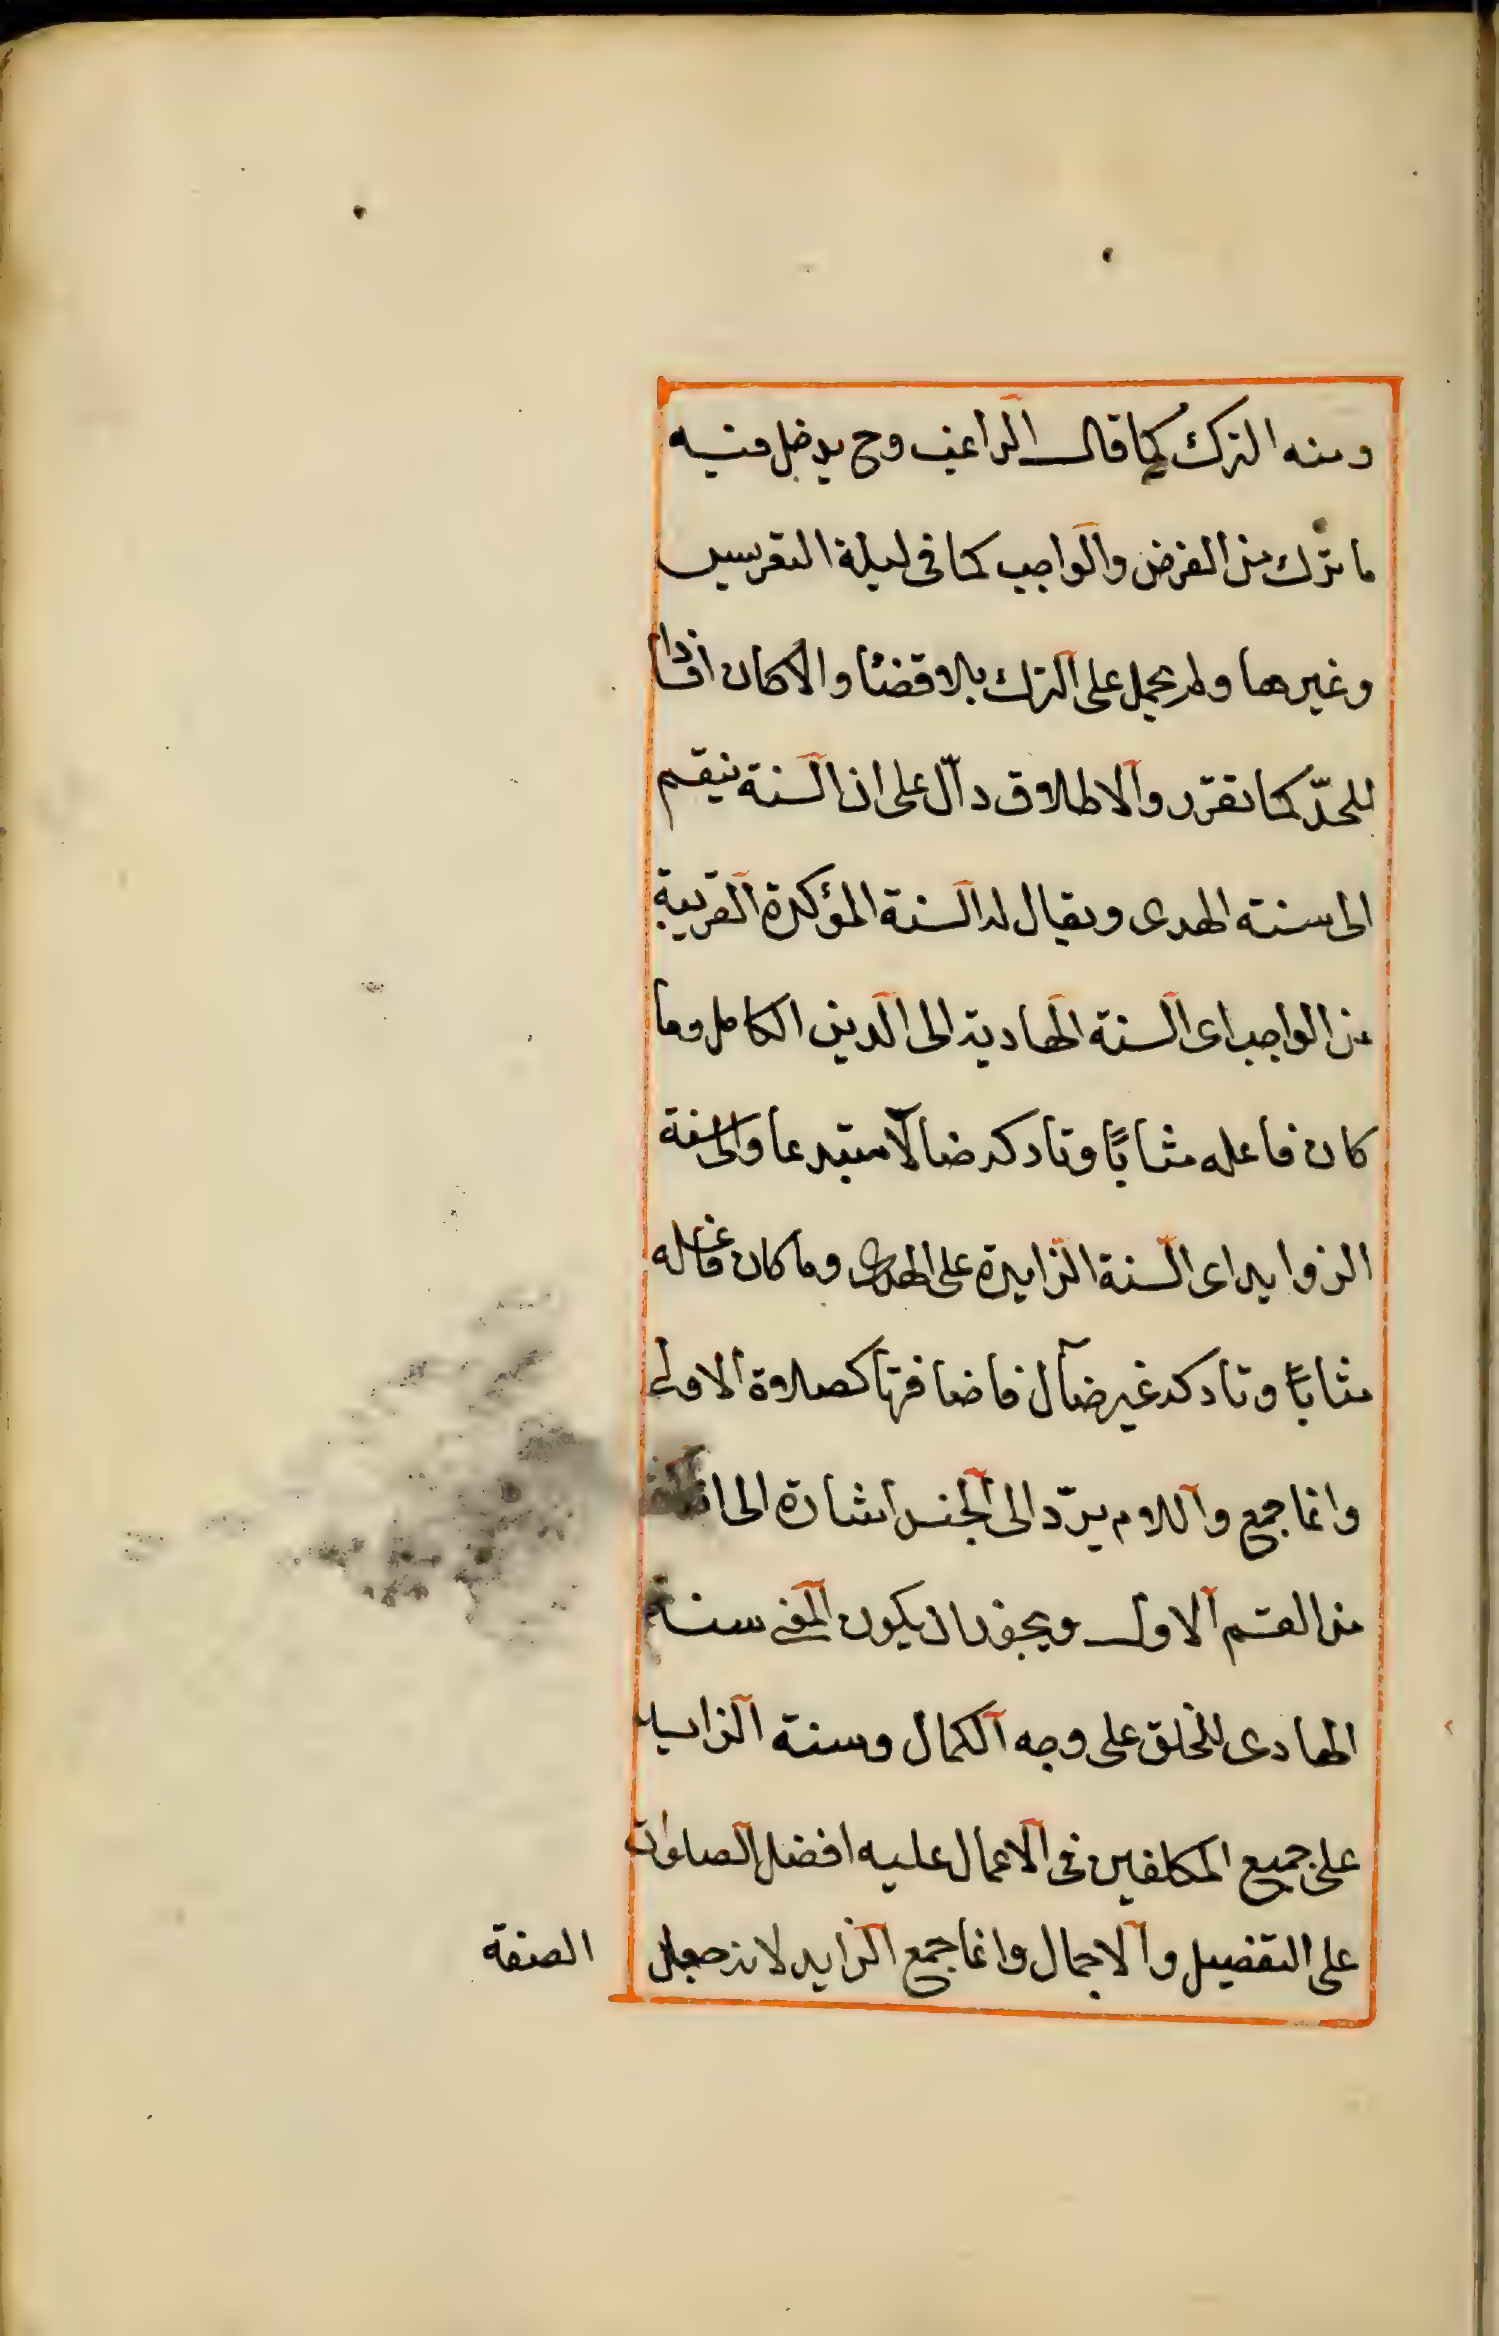 ومنه الترك كما قال الراغب وح يدخل فيه
ما ترك من الفرض والواجب كما فى ليلة التعريس
وغيرها ولم يحمل على الترك بلا قضاء والا كان افرادا
للحدّ كما تقرّر والاطلاق دالّ على ان السنة ينقسم
الى سنته الهدى ويقال له السنة المؤكدة القريبة
من الواجب اى السنة الهادية الى الدين الكامل وما
كان فاعله مثابًا وتاركه ضالا مبتدعا والى سنة
الزوايد اى السنة الزايدة على الهدى وما كان فاعله
مثابًا وتاركه غير ضالّ فاضافتها كصلاة الاولى
وانما جمع واللام يردّ الى الجنس اشارة الى
من القسم الاول ويجوز ان يكون المعنى سنة
الهادى للخلق على وجه الكمال وسنة الزايد
على جميع المكلفين فى الاعمال عليه افضل الصلوات
على التفضيل والاجمال وانما جمع الزايد لانه جعل
الصفة